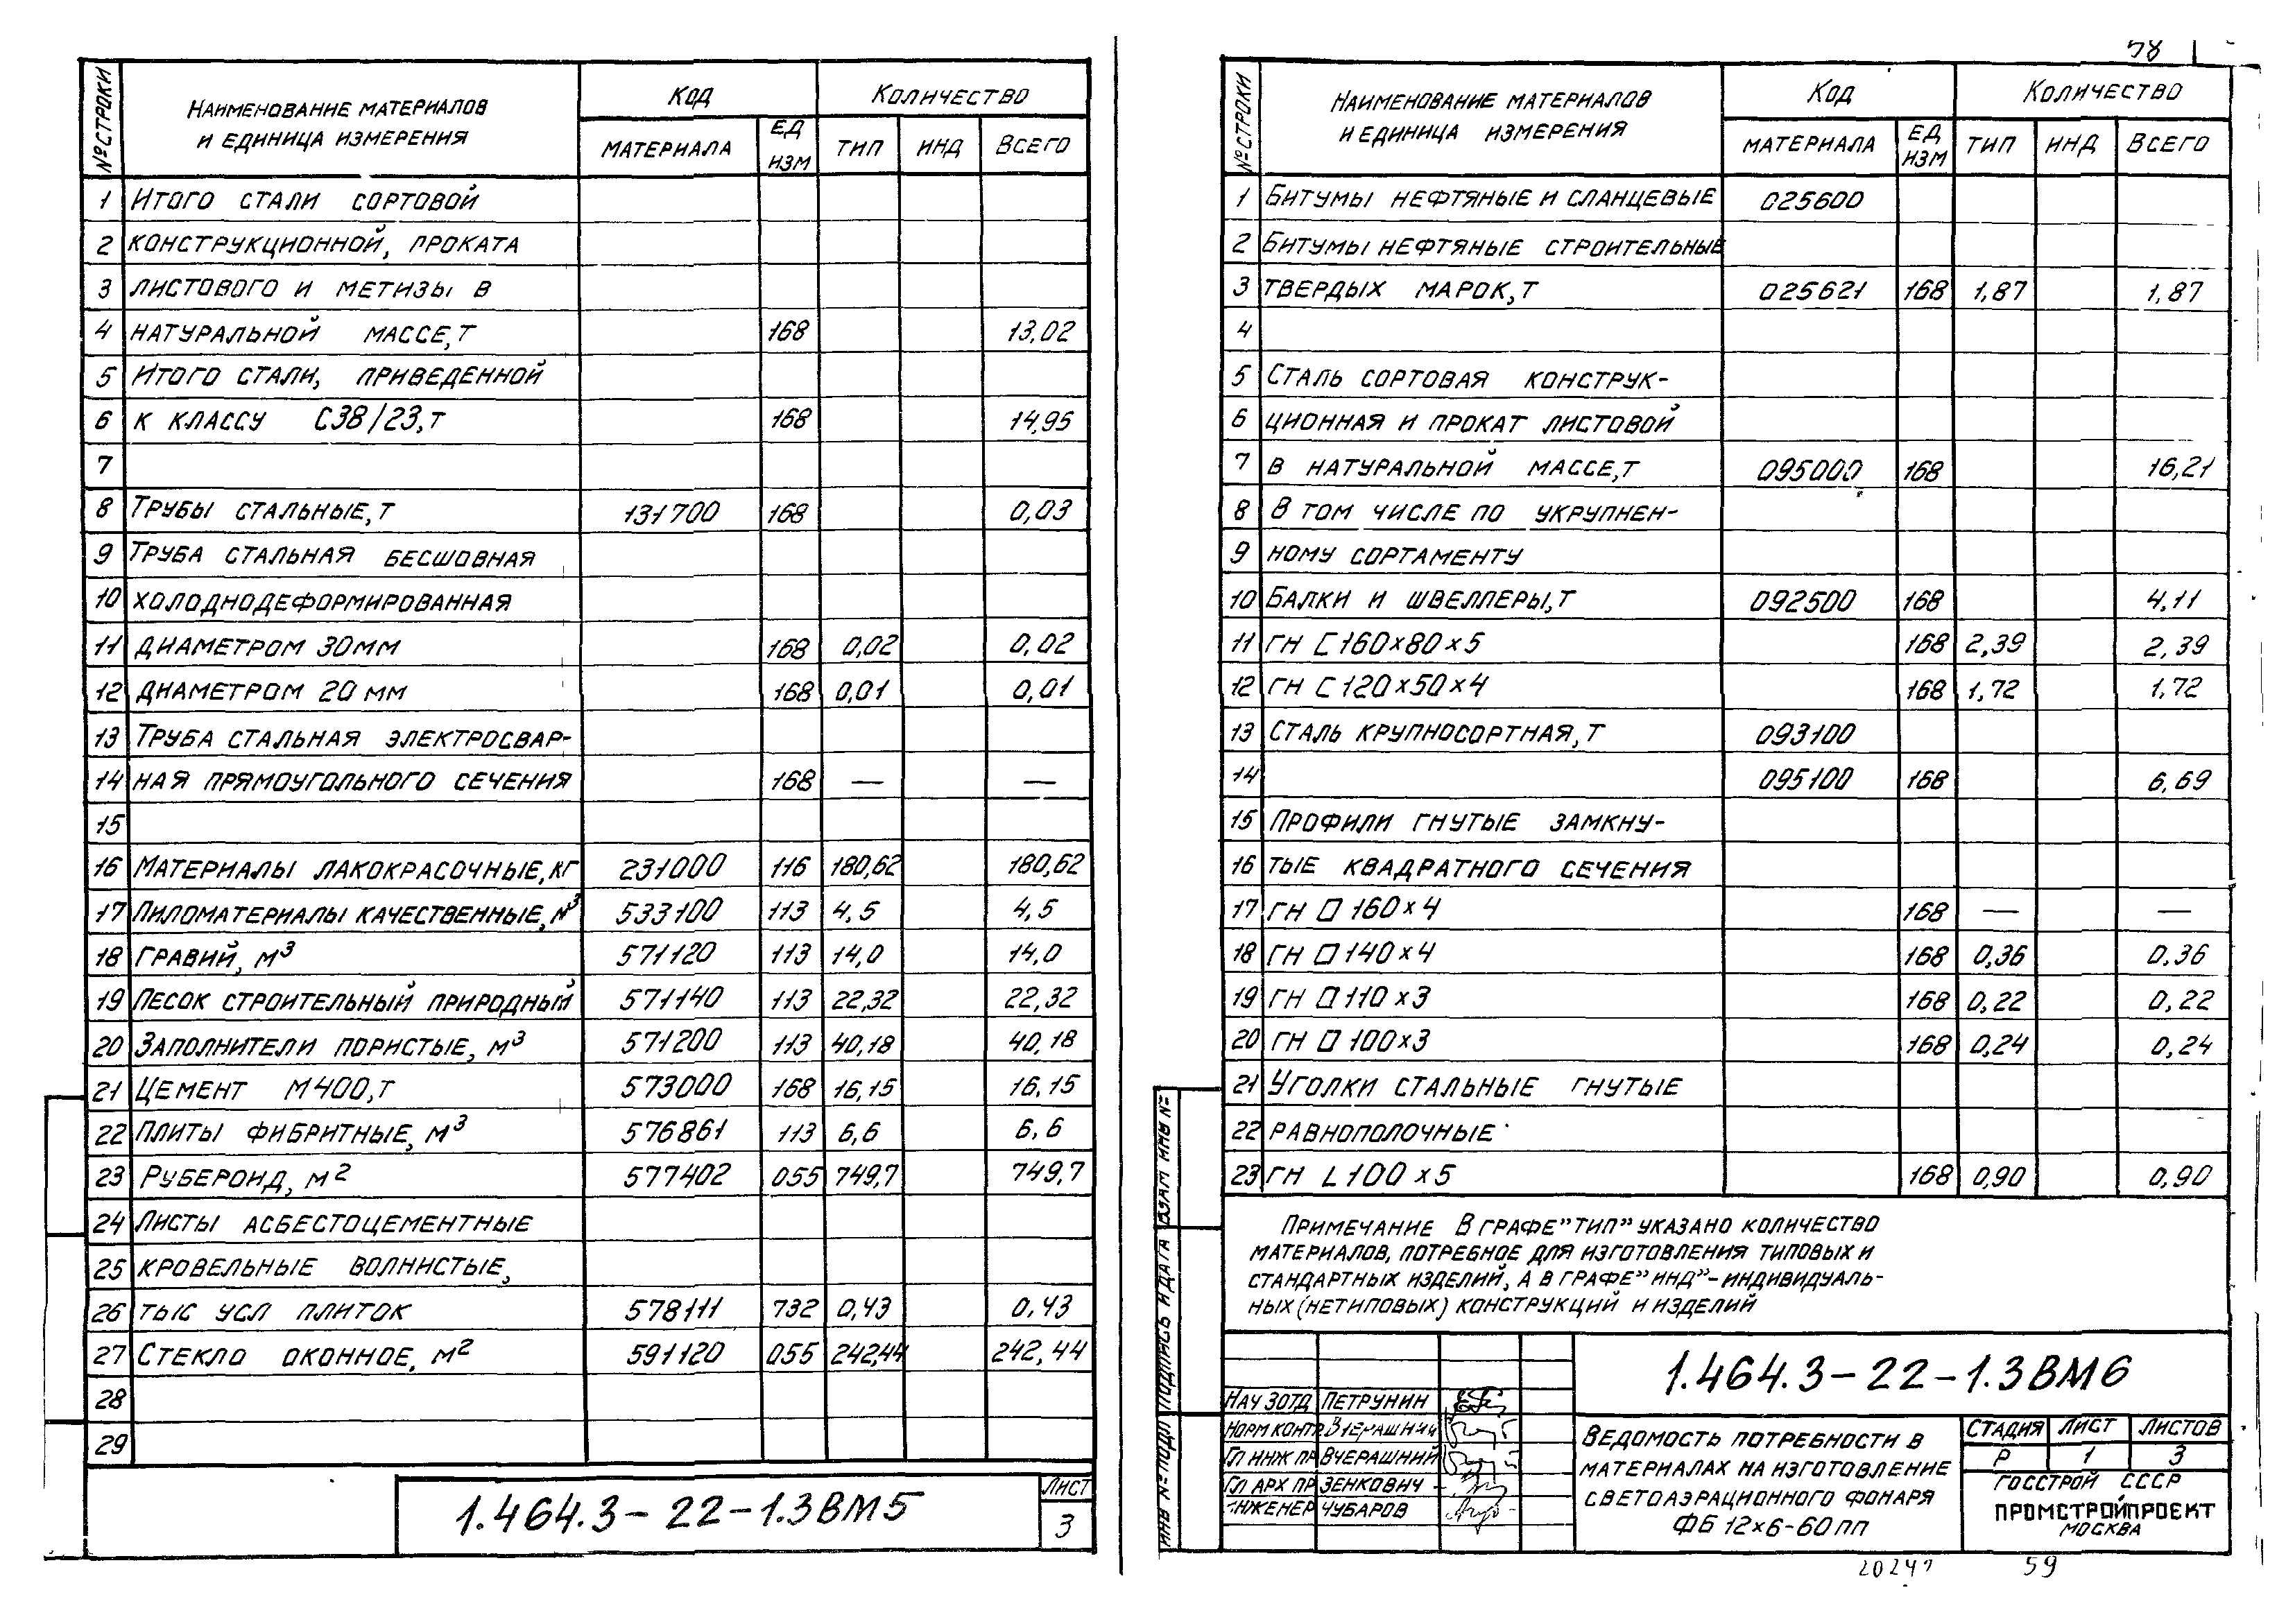 № СТРОКИ | НАИМЕНОВАНИЕ МАТЕРИАЛОВ И ЕДИНИЦА ИЗМЕРЕНИЯ | КОД | КОЛИЧЕСТВО
МАТЕРИАЛА | ЕД ИЗМ | ТИП | ИНД | ВСЕГО
1 ИТОГО СТАЛИ СОРТОВОЙ
2 КОНСТРУКЦИОННОЙ, ПРОКАТА
3 ЛИСТОВОГО И МЕТИЗЫ В
4 НАТУРАЛЬНОЙ МАССЕ, Т 168 13,02
5 ИТОГО СТАЛИ, ПРИВЕДЕННОЙ
6 К КЛАССУ С38/23, Т 168 14,95
7
8 ТРУБЫ СТАЛЬНЫЕ, Т 131700 168 0,03
9 ТРУБА СТАЛЬНАЯ БЕСШОВНАЯ
10 ХОЛОДНОДЕФОРМИРОВАННАЯ
11 ДИАМЕТРОМ 30 ММ 168 0,02 0,02
12 ДИАМЕТРОМ 20 ММ 168 0,01 0,01
13 ТРУБА СТАЛЬНАЯ ЭЛЕКТРОСВАР-
14 НАЯ ПРЯМОУГОЛЬНОГО СЕЧЕНИЯ 168 — —
15
16 МАТЕРИАЛЫ ЛАКОКРАСОЧНЫЕ, КГ 231000 116 180,62 180,62
17 ПИЛОМАТЕРИАЛЫ КАЧЕСТВЕННЫЕ, М³ 533100 113 4,5 4,5
18 ГРАВИЙ, М³ 571120 113 14,0 14,0
19 ПЕСОК СТРОИТЕЛЬНЫЙ ПРИРОДНЫЙ 571140 113 22,32 22,32
20 ЗАПОЛНИТЕЛИ ПОРИСТЫЕ, М³ 571200 113 40,18 40,18
21 ЦЕМЕНТ М400, Т 573000 168 16,15 16,15
22 ПЛИТЫ ФИБРИТНЫЕ, М³ 576861 113 6,6 6,6
23 РУБЕРОИД, М² 577402 055 749,7 749,7
24 ЛИСТЫ АСБЕСТОЦЕМЕНТНЫЕ
25 КРОВЕЛЬНЫЕ ВОЛНИСТЫЕ,
26 ТЫС УСЛ ПЛИТОК 578111 732 0,43 0,43
27 СТЕКЛО ОКОННОЕ, М² 591120 055 242,44 242,44
28
29
1.464.3-22-1.3ВМ5
ЛИСТ
3
58
№ СТРОКИ | НАИМЕНОВАНИЕ МАТЕРИАЛОВ И ЕДИНИЦА ИЗМЕРЕНИЯ | КОД | КОЛИЧЕСТВО
МАТЕРИАЛА | ЕД ИЗМ | ТИП | ИНД | ВСЕГО
1 БИТУМЫ НЕФТЯНЫЕ И СЛАНЦЕВЫЕ 025600
2 БИТУМЫ НЕФТЯНЫЕ СТРОИТЕЛЬНЫЕ
3 ТВЕРДЫХ МАРОК, Т 025621 168 1,87 1,87
4
5 СТАЛЬ СОРТОВАЯ КОНСТРУК-
6 ЦИОННАЯ И ПРОКАТ ЛИСТОВОЙ
7 В НАТУРАЛЬНОЙ МАССЕ, Т 095000 168 16,21
8 В ТОМ ЧИСЛЕ ПО УКРУПНЕН-
9 НОМУ СОРТАМЕНТУ
10 БАЛКИ И ШВЕЛЛЕРЫ, Т 092500 168 4,11
11 ГН [160×80×5 168 2,39 2,39
12 ГН [120×50×4 168 1,72 1,72
13 СТАЛЬ КРУПНОСОРТНАЯ, Т 093100
14 095100 168 6,69
15 ПРОФИЛИ ГНУТЫЕ ЗАМКНУ-
16 ТЫЕ КВАДРАТНОГО СЕЧЕНИЯ
17 ГН □ 160×4 168 — —
18 ГН □ 140×4 168 0,36 0,36
19 ГН □ 110×3 168 0,22 0,22
20 ГН □ 100×3 168 0,24 0,24
21 УГОЛКИ СТАЛЬНЫЕ ГНУТЫЕ
22 РАВНОПОЛОЧНЫЕ
23 ГН L100×5 168 0,90 0,90
ПРИМЕЧАНИЕ В ГРАФЕ "ТИП" УКАЗАНО КОЛИЧЕСТВО
МАТЕРИАЛОВ, ПОТРЕБНОЕ ДЛЯ ИЗГОТОВЛЕНИЯ ТИПОВЫХ И
СТАНДАРТНЫХ ИЗДЕЛИЙ, А В ГРАФЕ "ИНД"-ИНДИВИДУАЛЬ-
НЫХ (НЕТИПОВЫХ) КОНСТРУКЦИЙ И ИЗДЕЛИЙ
ИНВ № ПОДЛ | ПОДПИСЬ И ДАТА | ВЗАМ ИНВ №
НАЧ ЗОТД ПЕТРУНИН
НОРМ КОНТР ВЧЕРАШНИЙ
ГЛ ИНЖ ПР ВЧЕРАШНИЙ
ГЛ АРХ ПР ЗЕНКОВИЧ
ИНЖЕНЕР ЧУБАРОВ
1.464.3-22-1.3ВМ6
ВЕДОМОСТЬ ПОТРЕБНОСТИ В
МАТЕРИАЛАХ НА ИЗГОТОВЛЕНИЕ
СВЕТОАЭРАЦИОННОГО ФОНАРЯ
ФБ 12×6-60ПП
СТАДИЯ | ЛИСТ | ЛИСТОВ
Р | 1 | 3
ГОССТРОЙ СССР
ПРОМСТРОЙПРОЕКТ
МОСКВА
59